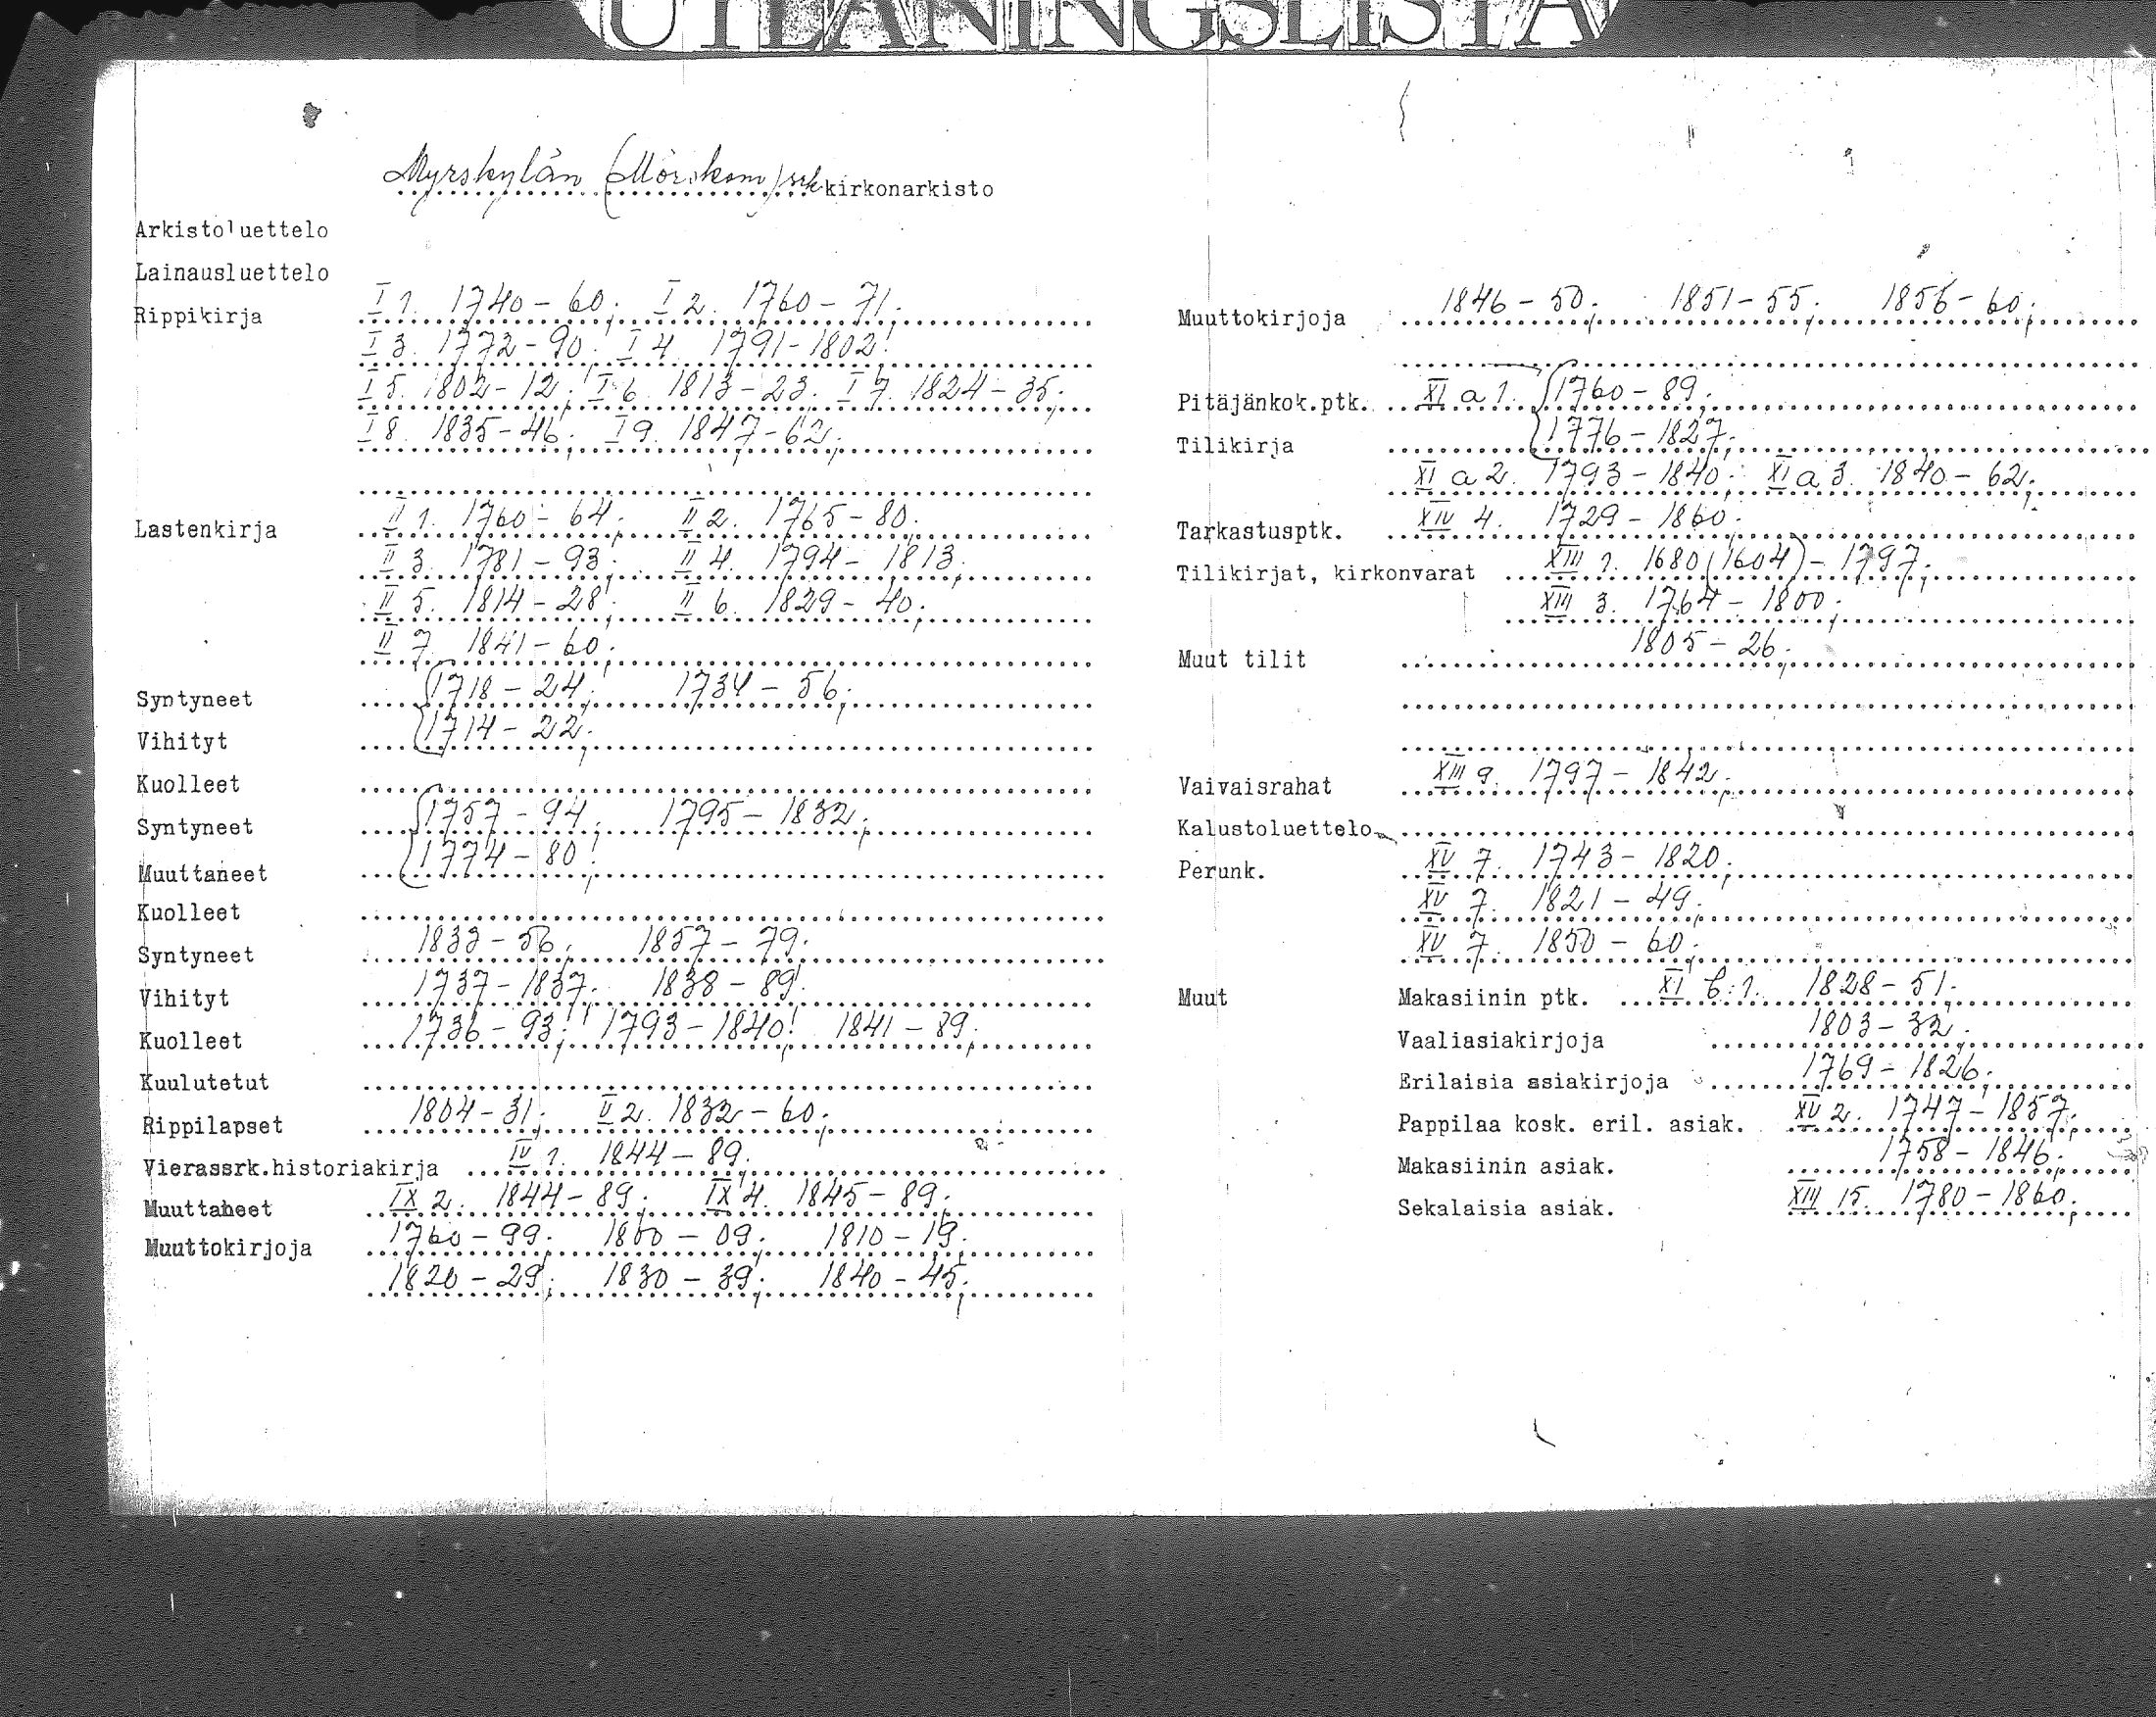 UTLÅNINGSLISTA
Myrskylän (Mörskom) srk kirkonarkisto
Arkistoluettelo
Lainausluettelo
Rippikirja I 1. 1740-60; I 2. 1760-71;
I 3. 1772-90; I 4. 1791-1802;
I 5. 1802-12; I 6. 1813-23. I 7. 1824-35;
I 8. 1835-46; I 9. 1847-62;
Lastenkirja II 1. 1760-64; II 2. 1765-80;
II 3. 1781-93; II 4. 1794-1813;
II 5. 1814-28; II 6. 1829-40;
II 7. 1841-60;
Syntyneet {1718-24; 1734-56;
Vihityt {1714-22;
Kuolleet
Syntyneet {1757-94; 1795-1832;
Muuttaneet {1774-80;
Kuolleet
Syntyneet 1833-56; 1857-79;
Vihityt 1737-1837; 1838-89;
Kuolleet 1736-93; 1793-1840; 1841-89;
Kuulutetut
Rippilapset 1804-31; II 2. 1832-60;
Vierassrk.historiakirja IV 1. 1844-89.
Muuttaneet IX 2. 1844-89; IX 4. 1845-89;
Muuttokirjoja 1760-99; 1800-09; 1810-19;
1820-29; 1830-39; 1840-45;
Muuttokirjoja 1846-50; 1851-55; 1856-60;
Pitäjänkok.ptk. XI a 1. {1760-89;
Tilikirja {1776-1827;
XI a 2. 1793-1840; XI a 3. 1840-62;
Tarkastusptk. XIV 4. 1729-1860;
Tilikirjat, kirkonvarat XIII 1. 1680(1604)-1797;
XIII 3. 1764-1800;
Muut tilit 1805-26;
Vaivaisrahat XIII 9. 1797-1842;
Kalustoluettelo
Perunk. XV 7. 1743-1820;
XV 7. 1821-49;
XV 7. 1850-60;
Muut Makasiinin ptk. XI b:1. 1828-51;
Vaaliasiakirjoja 1803-32;
Erilaisia asiakirjoja 1769-1826;
Pappilaa kosk. eril. asiak. XV 2. 1747-1857;
Makasiinin asiak. 1758-1846;
Sekalaisia asiak. XIII 15. 1780-1860;